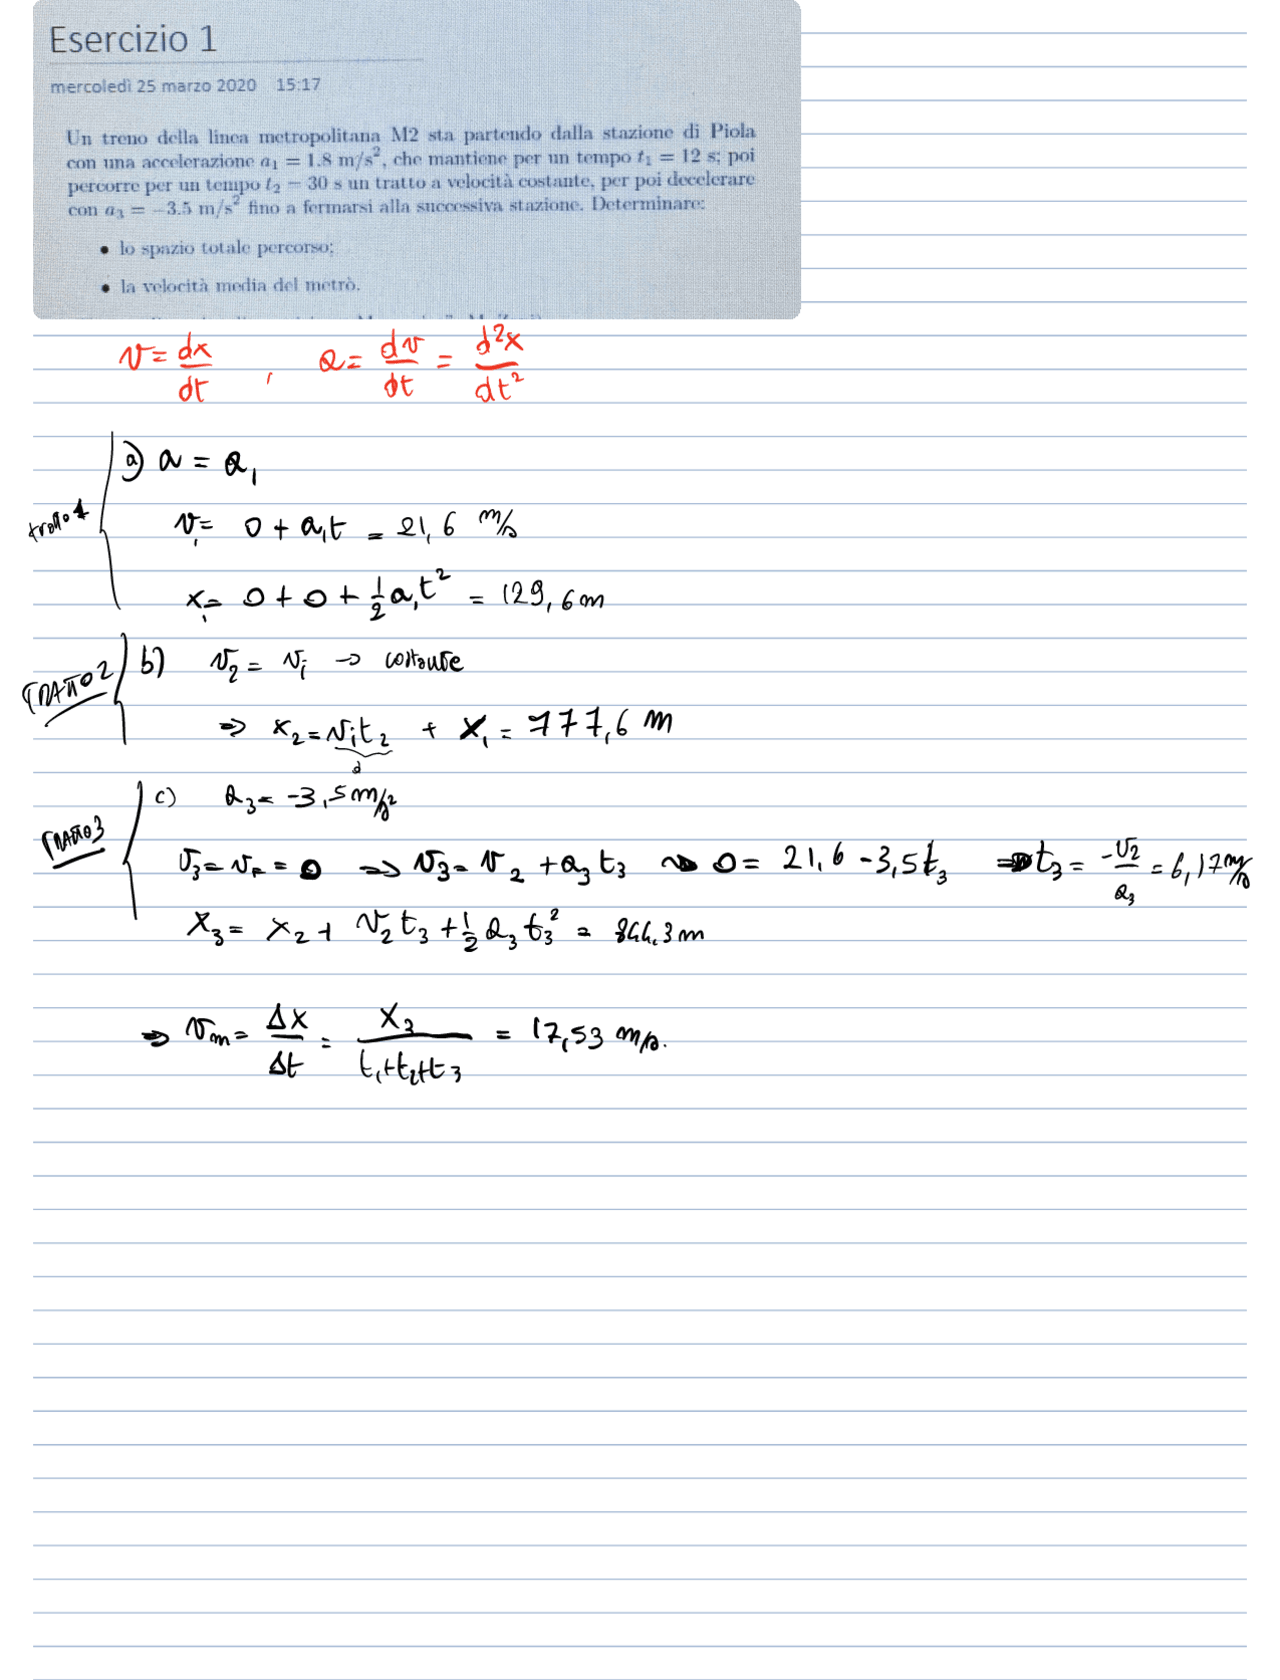 Esercizio 1
mercoledì 25 marzo 2020 15:17
Un treno della linea metropolitana M2 sta partendo dalla stazione di Piola
con una accelerazione a₁ = 1.8 m/s², che mantiene per un tempo t₁ = 12 s; poi
percorre per un tempo t₂ = 30 s un tratto a velocità costante, per poi decelerare
con a₃ = −3.5 m/s² fino a fermarsi alla successiva stazione. Determinare:
• lo spazio totale percorso;
• la velocità media del metrò.
v = dx/dt , a = dv/dt = d²x/dt²
a) a = a₁
tratto 1
v₁ = 0 + a₁t = 21,6 m/s
x₁ = 0 + 0 + 1/2 a₁t² = 129,6 m
TRATTO 2
b) v₂ = v₁ → costante
⇒ x₂ = v₁t₂ + x₁ = 777,6 m
d
c) a₃ = -3,5 m/s²
TRATTO 3
v₃ = v_F = 0 ⇒ v₃ = v₂ + a₃t₃ ⇝ 0 = 21,6 - 3,5t₃ ⇒ t₃ = -v₂/a₃ = 6,17 m/s
x₃ = x₂ + v₂t₃ + 1/2 a₃t₃² = 844,3 m
⇒ vₘ = Δx/Δt = x₃/(t₁+t₂+t₃) = 17,53 m/s.